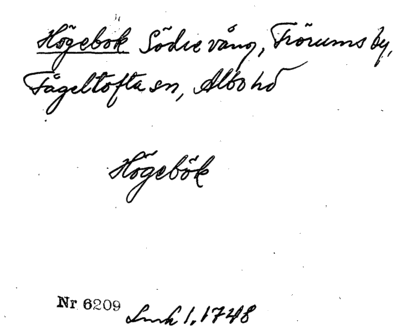 Högebok Södre vång, Frörums by,
Fågeltofta sn, Albo hd
Högebök
Nr 6209
Lmh 1, 1748